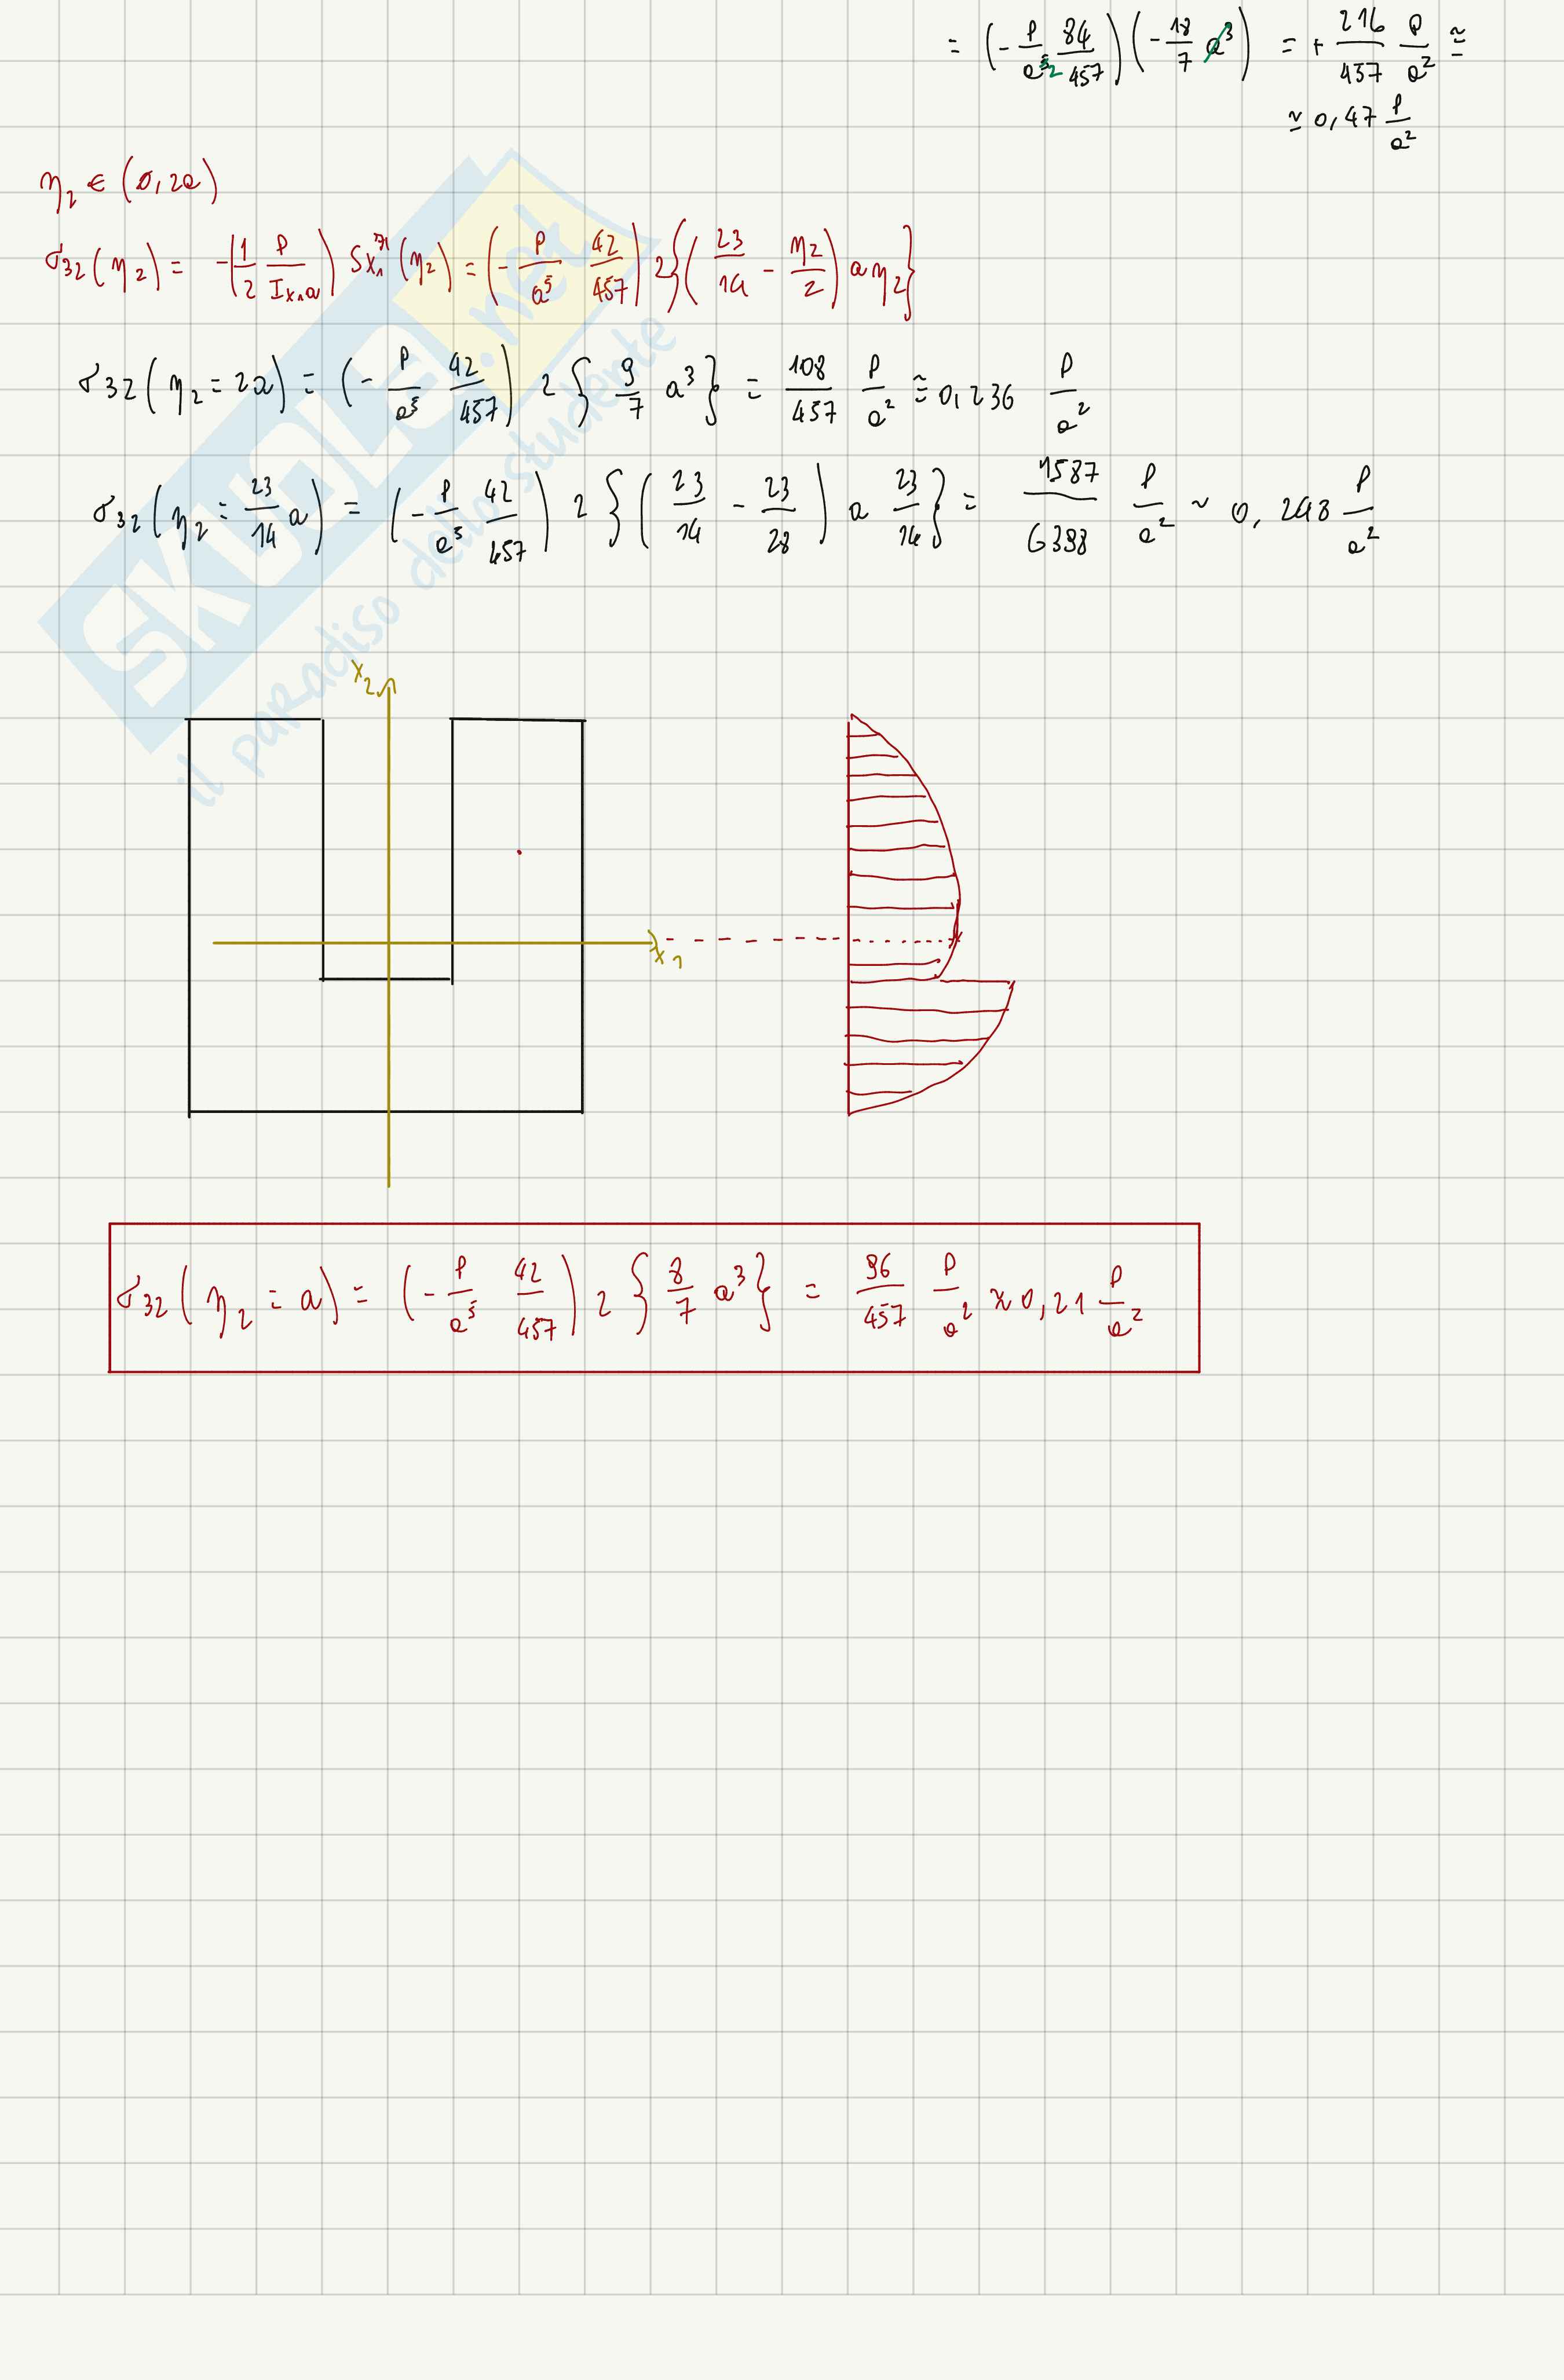 = (- P/a⁵² 84/457) (- 18/7 a³) = + 216/457 P/a² ≅
≅ 0,47 P/a²
η₂ ∈ (0,2a)
σ₃₂(η₂) = -(1/2 P/Ix₁a) Sx₁^m(η₂) = (- P/a⁵ 42/457) 2{(23/14 - η₂/2) a η₂}
σ₃₂(η₂ = 2a) = (- P/a⁵ 42/457) 2 {9/7 a³} = 108/457 P/a² ≅ 0,236 P/a²
σ₃₂(η₂ = 23/14 a) = (- P/a⁵ 42/457) 2 {(23/14 - 23/28) a 23/14} = 1587/6398 P/a² ~ 0,248 P/a²
x₂
x₁
σ₃₂(η₂ = a) = (- P/a⁵ 42/457) 2 {8/7 a³} = 96/457 P/a² ≈ 0,21 P/a²
SKUOLA.net
il paradiso dello studente